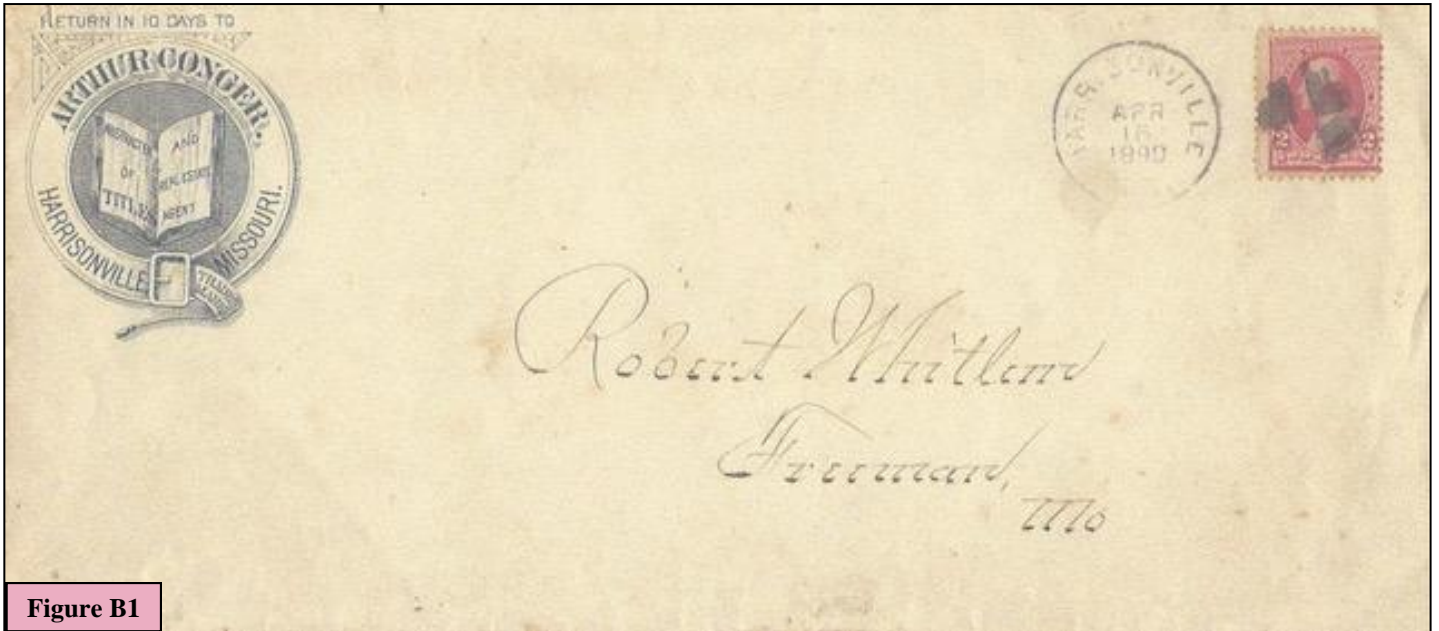 RETURN IN 10 DAYS TO
ARTHUR CONGER,
ABSTRACTER
OF
TITLES
AND
REAL ESTATE
AGENT
HARRISONVILLE, MISSOURI.
TRADE
HARRISONVILLE
APR
1890
2 2
Robert
Freeman,
Mo
Figure B1